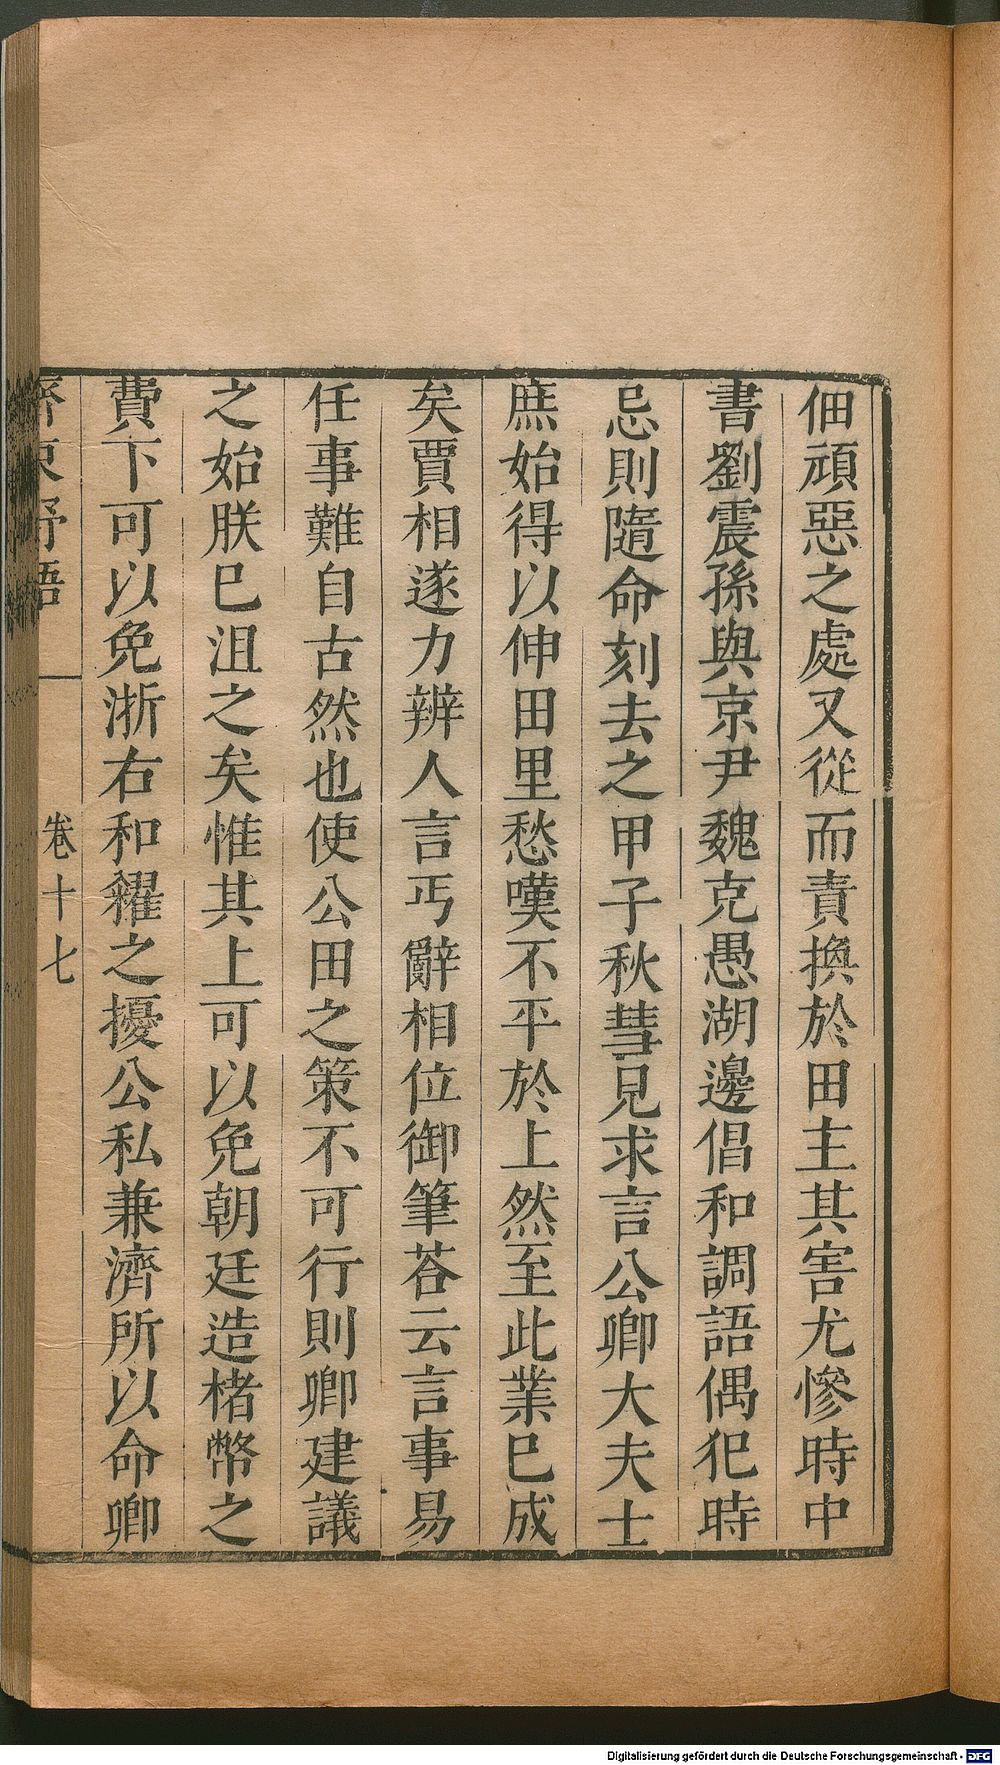 佃頑惡之處又從而責換於田主其害尤慘時中
書劉震孫與京尹魏克愚湖邊倡和調語偶犯時
忌則隨命刻去之甲子秋彗見求言公卿大夫士
庶始得以伸田里愁嘆不平於上然至此業巳成
矣賈相遂力辨人言丐辭相位御筆荅云言事易
任事難自古然也使公田之策不可行則卿建議
之始朕巳沮之矣惟其上可以免朝廷造楮幣之
費下可以免浙右和糴之擾公私兼濟所以命卿
齊東野語
卷十七
Digitalisierung gefördert durch die Deutsche Forschungsgemeinschaft - DFG